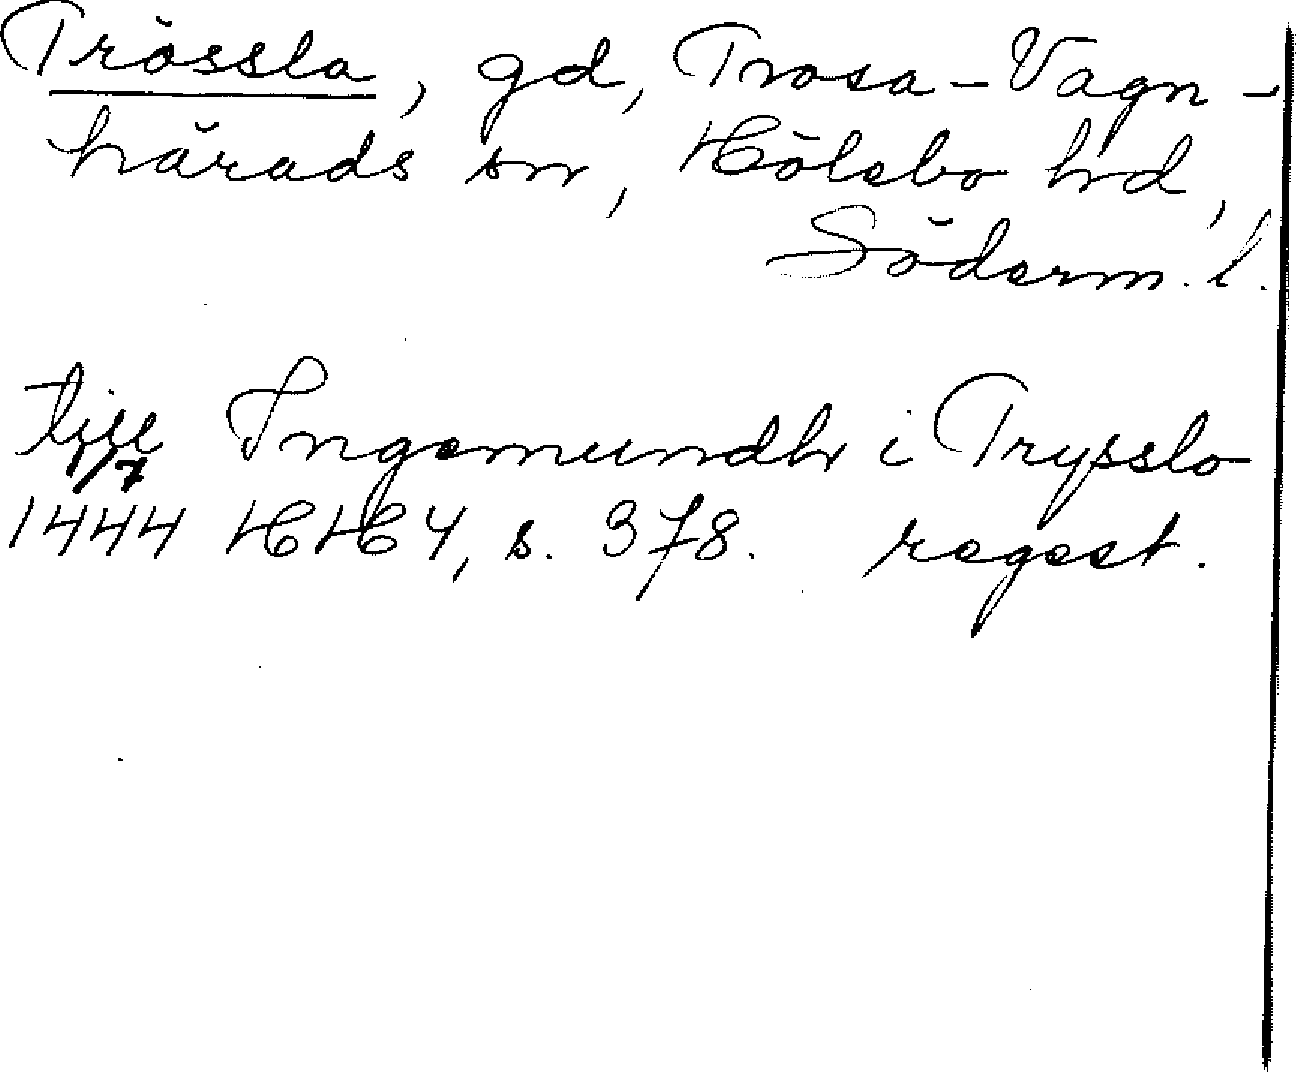 Trössla, gd, Trosa-Vagn-
härads sn, Hölebo hd,
Söderm. l.
till Ingemundh i Trysslo
1/7
1444 HH 4, s. 378. regest.